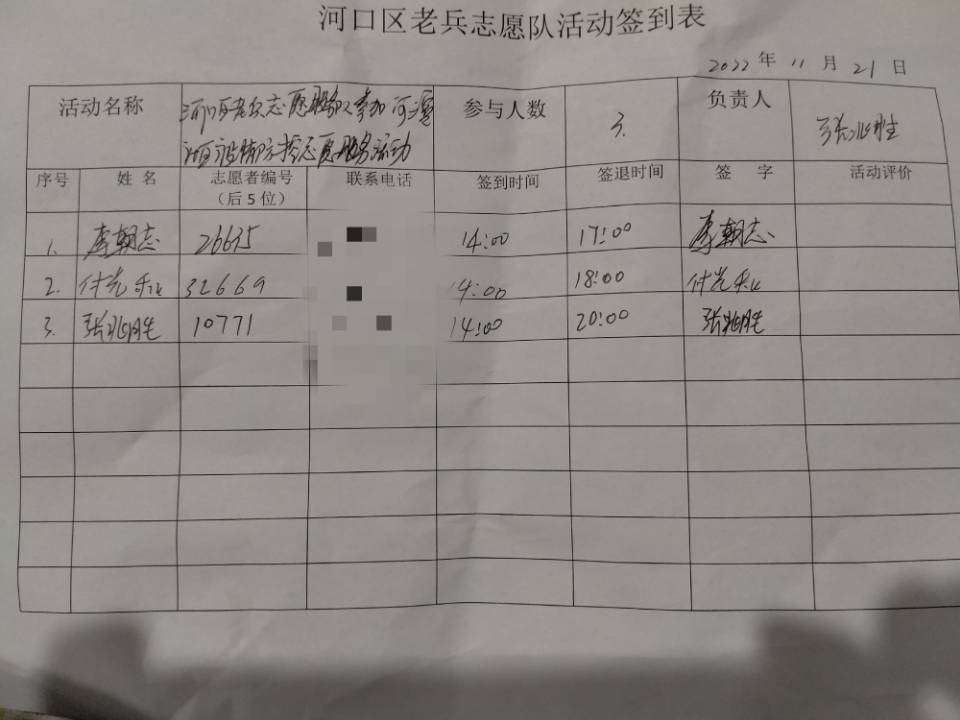 河口区老兵志愿队活动签到表
2022 年 11 月 21 日
活动名称 河口区老兵志愿服务队参加河滨 参与人数 3. 负责人 张兆胜
社区疫情防控志愿服务活动
序号 姓 名 志愿者编号 联系电话 签到时间 签退时间 签 字 活动评价
（后 5 位）
1. 李朝志 26635 14:00 17:00 李朝志
2. 付光 32669 14:00 18:00 付光
3. 张兆胜 10771 14:00 20:00 张兆胜